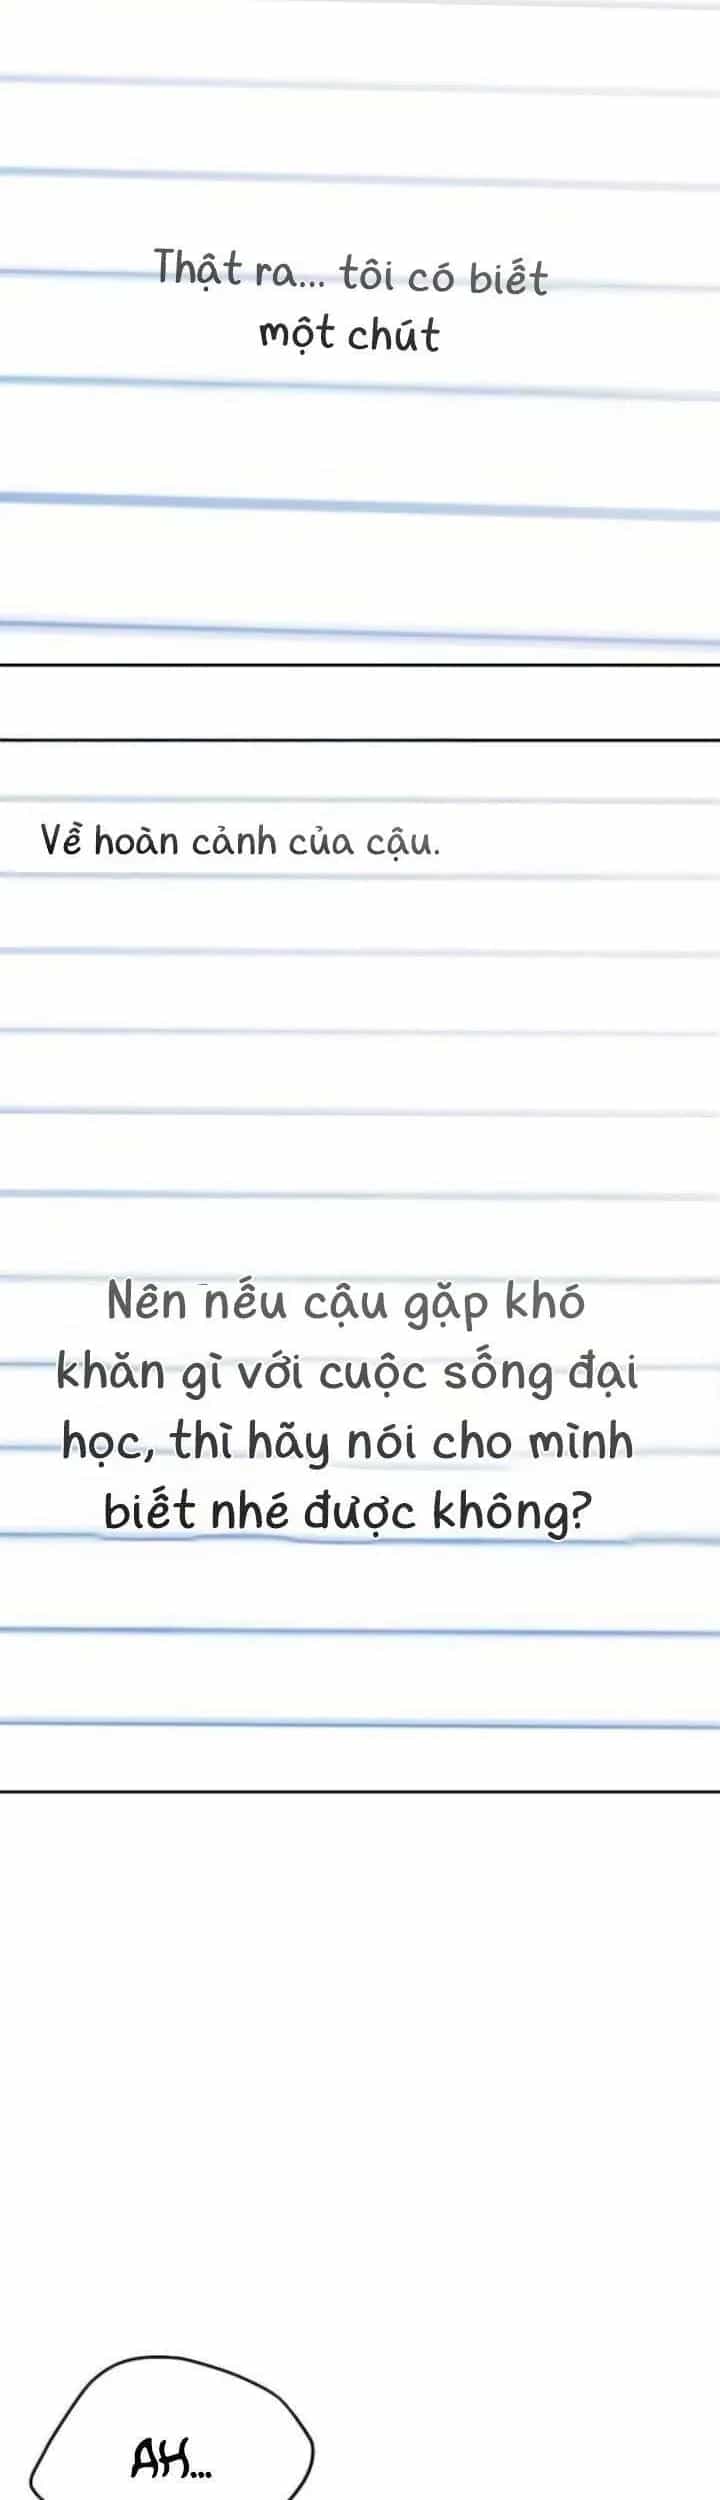 Thật ra... tôi có biết
một chút
Về hoàn cảnh của cậu.
Nên nếu cậu gặp khó
khăn gì với cuộc sống đại
học, thì hãy nói cho mình
biết nhé được không?
AH...